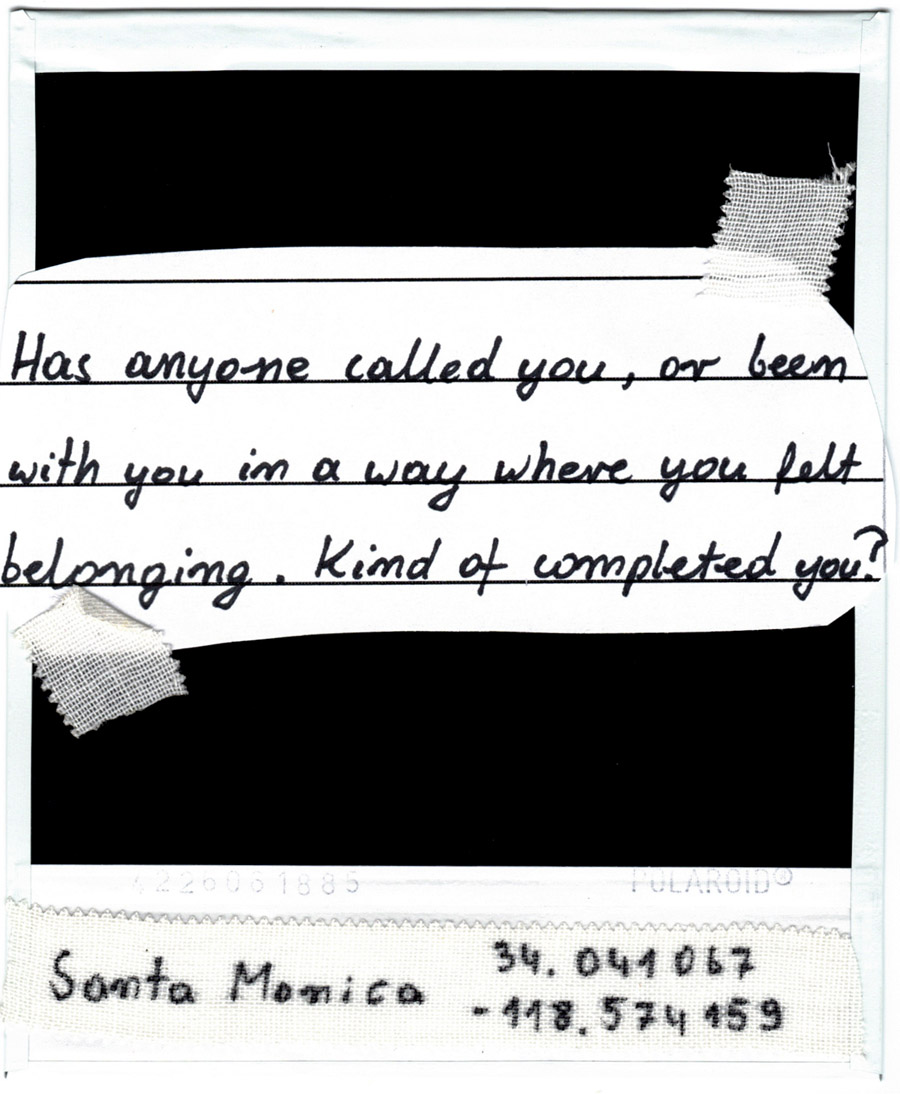 Has anyone called you, or been
with you in a way where you felt
belonging. Kind of completed you?
4226061885 POLAROID®
Santa Monica 34.041067
-118.574159